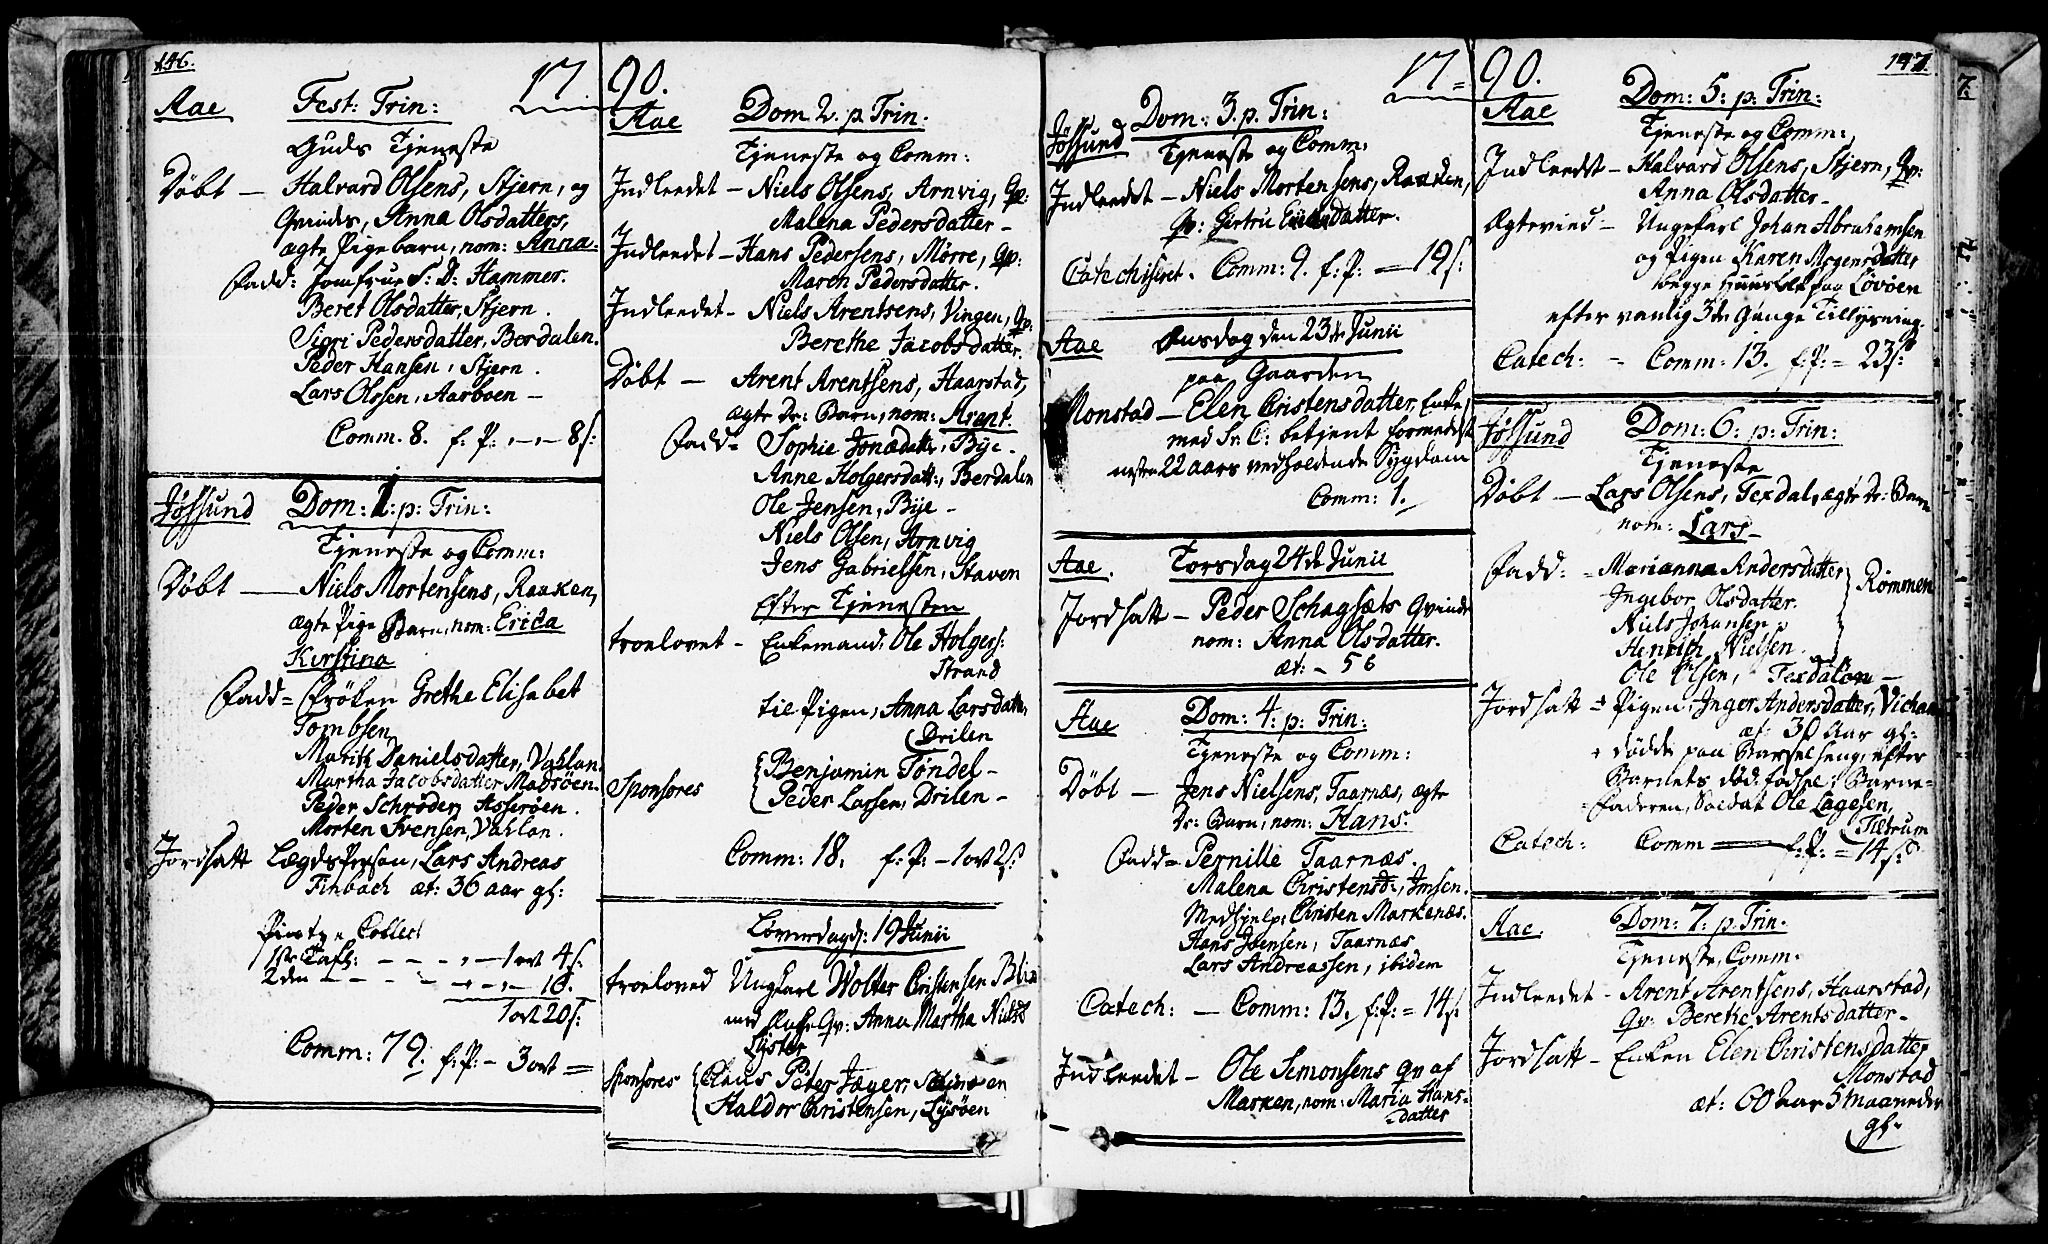 146.
17 90.
Aae Fest: Trin:
Guds Tjeneste
Döbt — Halvard Olsens, Stjern, og
Qvindes, Anna Olsdatters,
ægte Pigebarn, nom: Anna.
Fadd: Jomfrue S: D: Hammer.
Beret Olsdatter, Stjern.
Siri Pedersdatter, Berdalen.
Peder Hansen, Stjern.
Lars Olssen, Aarboen —
Comm. 8. f: P: — — 8 s:
Jössund Dom: 1: p: Trin:
Tjeneste og Comm:
Döbt — Niels Mortensens, Raaken,
ægte Pige Barn, nom: Erica
Kirstina
Fadd = Fröken Grethe Elisabet
Tombsen
Marith Danielsdatter, Vahlan.
Martha Jacobsdatter Madsöen.
Peder Schröder, Asseröen.
Morten Svensen, Vahlan.
Jordsatt Lægds Person, Lars Andreas
Finbach æt: 36 aar gl:
Collect
1ste Tafl: — — — 1 ort 4 s:
2den — — — — — 16.
1 ort 20 s:
Comm: 79. f: P: — 3 ort =
Aae Dom 2. p. Trin:
Tjeneste og Comm:
Indleedet — Niels Olsens, Arnvig, Qv:
Malena Pedersdatter —
Indleedet — Hans Pedersens, Mörre, Qv:
Maren Pedersdatter.
Indleedet — Niels Arentsens, Vingen, Qv:
Berethe Jacobsdatter.
Döbt — Arent Arentsens, Haarstad,
ægte Dr: Barn, nom: Arent.
Fadd = Sophie Jonædatter, Bye.
Anne Holgersdatt:, Berdalen
Ole Jensen, Bye —
Niels Olsen, Arnvig
Jens Gabrielsen, Staven
Efter Tjenesten
troelovet — Enkemand, Ole Holgers:
Strand
til Pigen, Anna Larsdatter,
Drilen
Sponsores {Benjamin Töndel —
Peder Larsen, Drilen —
Comm: 18. f: P: — 1 ort 2 s:
Löverdag d: 19 Junii
troeloved Ungkarl Wolter Cristensen
med Enke Qv: Anna Martha Nielsd
Lysöe
Sponsores {Claus Peter Jæger,
Haldor Christensen, Lysöen
17 = 90.
147
Jössund Dom: 3. p. Trin:
Tjeneste og Comm:
Indleedet — Niels Mortensens, Raaken,
Qv: Gertru datter.
Catechiseret. Comm: 9. f: P: = 19 s:
Aae Onsdag den 23de Junii
paa Gaarden
Monstad — Elen Cristensdatter, Enke,
med Sr. C: betjent formedelst
nesten 22 aars vedholdende Sygdom
Comm: 1.
Aae. Torsdag 24de Junii
Jordsatt — Peder Schagsæts Qvinde
nom: Anna Olsdatter.
æt: — 56
Aae Dom: 4: p: Trin:
Tjeneste og Comm:
Döbt — Jens Nielsens, Taarnæs, ægte
Dr: Barn, nom: Hans.
Fadd = Pernille Taarnæs.
Malena Christensd:, Imsen.
Medhjelp: Christen Markenæs.
Hans Jensen, Taarnæs
Lars Andreassen, ibidem
Catech: — Comm: 13. f: P: = 14 s:
Indleedet — Ole Simonsens Qv af
Marken, nom: Maria Hans-
datter
Aae Dom: 5: p. Trin:
Tjeneste og Comm:
Indleedet — Halvard Olsens, Stjern, Qv:
Anna Olsdatter —
Ægteviede — Ungekarl Johan Abrahamsen
og Pigen Karen Mogensdatter
begge paa Lövöen
efter vanlig 3de Gange Tillysning.
Catech: — Comm: 13. f: P: = 23 s:
Jössund Dom: 6: p: Trin:
Tjeneste
Döbt — Lars Olsens, Texdal, ægte Dr: Barn
nom: Lars —
Fadd: = Marianna Andersdatter
Ingebor Olsdatter.
Niels Johansen
Henrich Nielsen. } Römmen
Ole Olsen, Texdalön —
Jordsatt — Pigen, Inger Andersdatter,
æt: 30 Aar gl:
döde paa Barselseng, efter
Barnets död-födsel; Barne-
faderen, Soldat Ole Lagesen,
Tiltrum
Catech: Comm — f: P: = 14 s:
Aae. Dom: 7: p. Trin:
Tjeneste, Comm:
Indleedet — Arent Arentsens, Haarstad,
Qv: Berethe Arentsdatter —
Jordsatt — Enken Elen Christensdatter,
Monstad
æt: 60 Aar 5 Maaneder
gl: